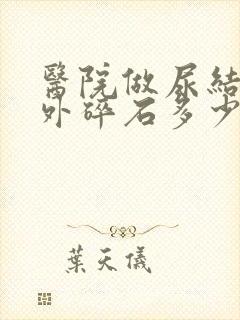 醫院做尿結
外碎石多少
葉天儀